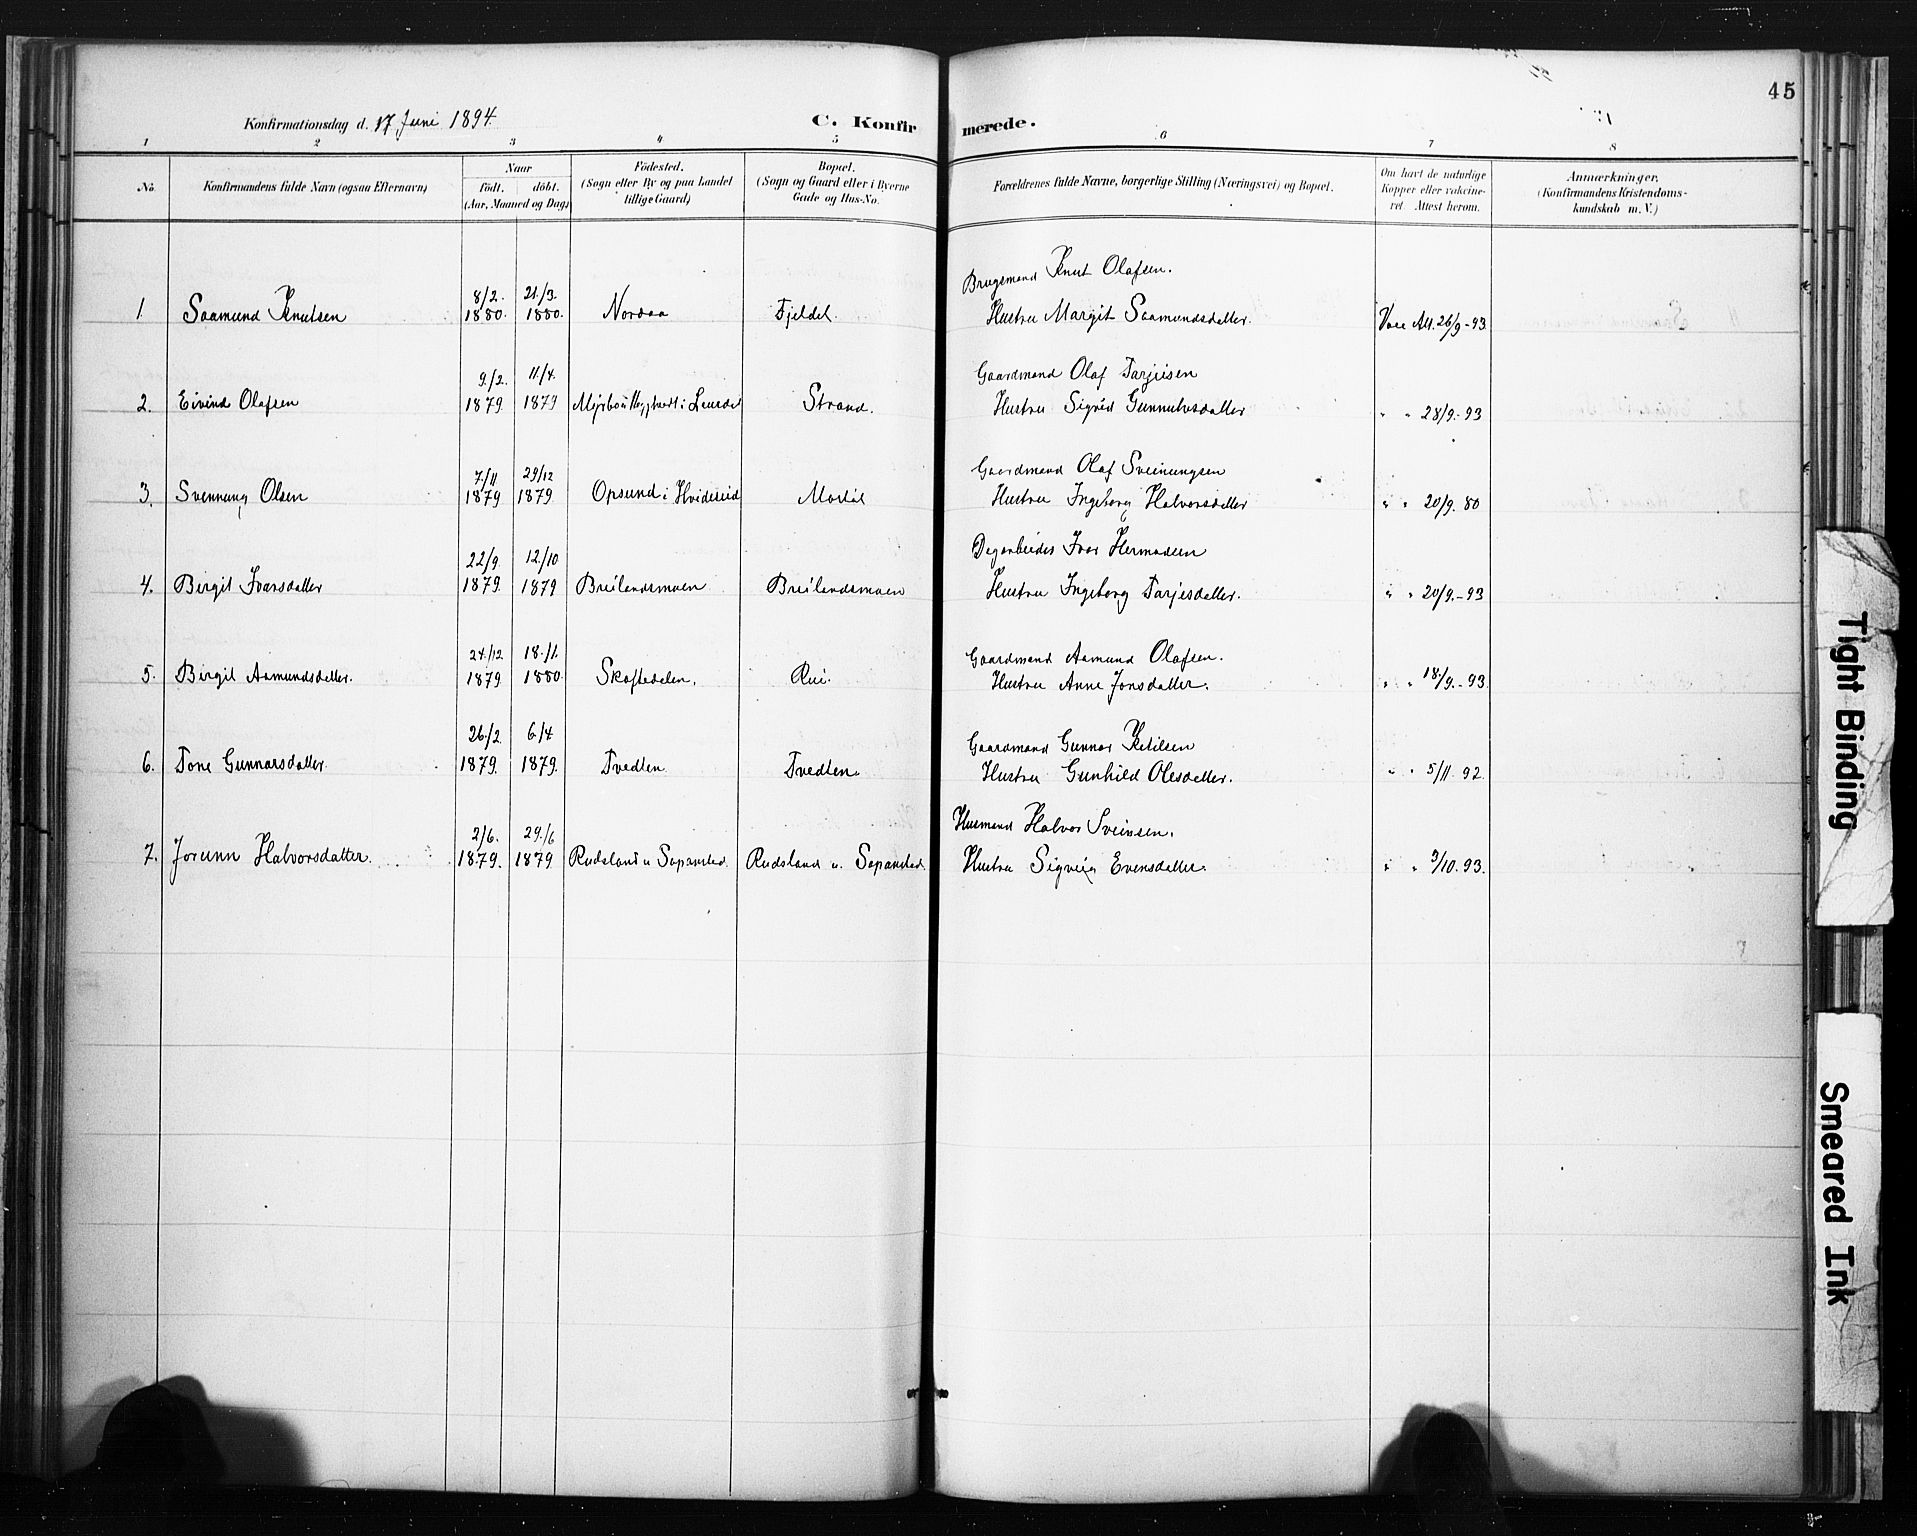 45
Konfirmationsdag d. 17 Juni 1894
C. Konfirmerede.
1 2 3 4 5 6 7 8
No. Konfirmandens fulde Navn (ogsaa Efternavn) Naar födt. döbt. (Aar, Maaned og Dag) Födested. (Sogn eller By og paa Landet tillige Gaard) Bopæl. (Sogn og Gaard eller i Byerne Gade og Hus-No. Forældrenes fulde Navne, borgerlige Stilling (Næringsvei) og Bopæl. Om havt de naturlige Kopper eller vakcineret. Attest herom. Anmærkninger. (Konfirmandens Kristendomskundskab m. V.)
8/2. 21./3. Brugsmand Knut Olafsen.
1. Saamund Knutsen 1880. 1880. Nordaa Fjeldel. Hustru Margit Saamundsdatter. Vacc Att. 26/9-93.
9./2. 11/4. Gaardmand Olaf Tarjeisen
2. Eivind Olafsen 1879. 1879 i Strand. Hustru Sigrid Gunnulvsdatter " " 28/9.-93
7./11 29/12 Gaardmand Olaf Sveinungsen
3. Svennung Olsen 1879 1879 Opsund i Hvideseid Hustru Ingeborg Halvorsdatter " " 20/9. 80
22/9. 12./10 Ivar Hermodsen
4. Birgit Ivarsdatter 1879. 1879 Breilandsmoen Breilandsmoen Hustru Ingeborg Tarjesdatter. " " 20/9.-93
24./12 18./1. Gaardmand Aamund Olafsen.
5. Birgit Aamundsdatter. 1879 1880. Skaftedalen. Rui. Hustru Anne Jonsdatter. " " 18./9.-93.
26./2. 6./4 Gaardmand Gunnar Ketilsen
6. Tone Gunnarsdatter. 1879. 1879. Tvedten Tvedten. Hustru Gunhild Olesdatter. " " 5/11. 92.
2/6. 29./6 Husmand Halvor Sveinsen.
7. Jorunn Halvorsdatter. 1879. 1879 Rudsland u Rudsland u. Hustru Sigveig Evensdatter. " " 3/10. 93.
Tight Binding
Smeared Ink